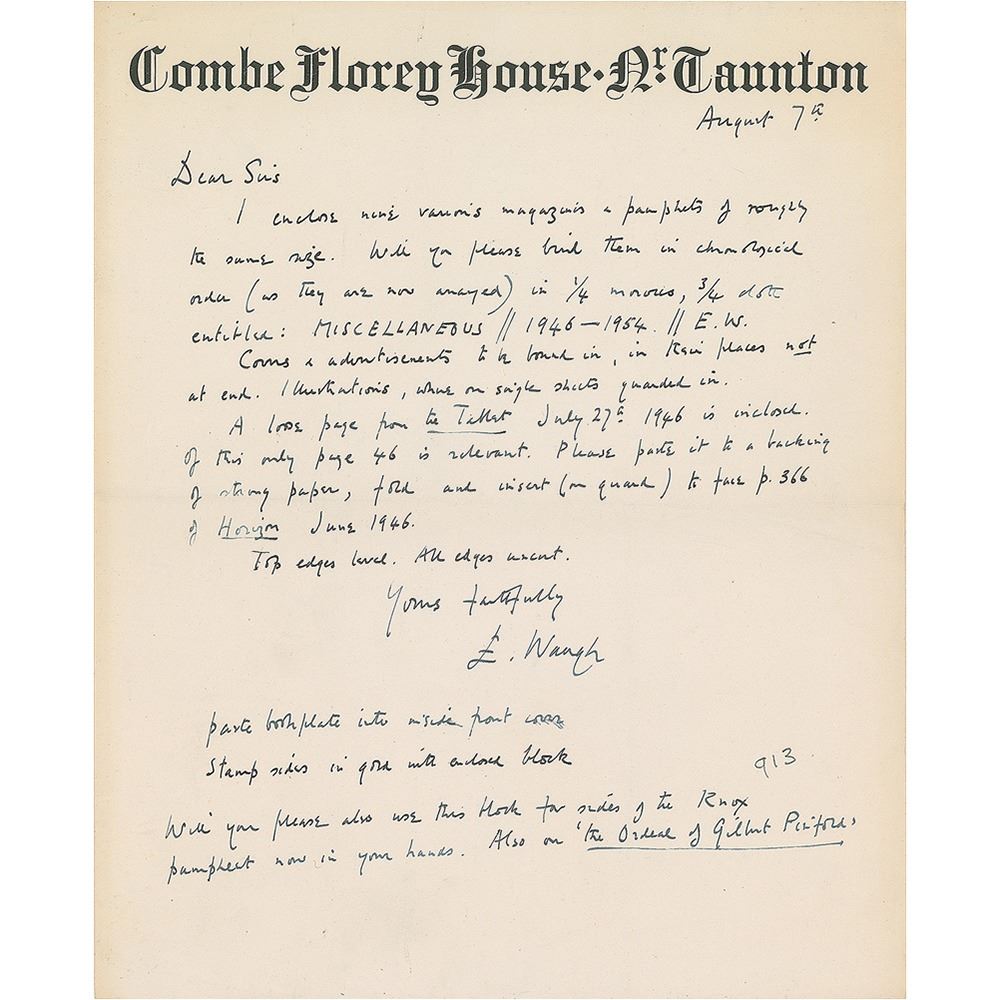 Combe Florey House · Nr. Taunton
August 7th
Dear Sirs
I enclose nine various magazines & pamphlets of roughly
the same size. Will you please bind them in chronological
order (as they are now arrayed) in 1/4 morocco, 3/4 cloth
entitled: MISCELLANEOUS // 1946—1954. // E.W.
Covers & advertisements to be bound in, in their places not
at end. Illustrations, where on single sheets guarded in.
A loose page from the Tablet July 27th 1946 is inclosed.
Of this only page 46 is relevant. Please paste it to a backing
of strong paper, fold and insert (on guard) to face p. 366
of Horizon June 1946.
Top edges level. All edges uncut.
Yours faithfully
E. Waugh
paste bookplate into inside front cover
Stamp sides in gold with enclosed block
913
Will you please also use this block for sides of the Knox
pamphlet now in your hands. Also on 'the Ordeal of Gilbert Pinfold'